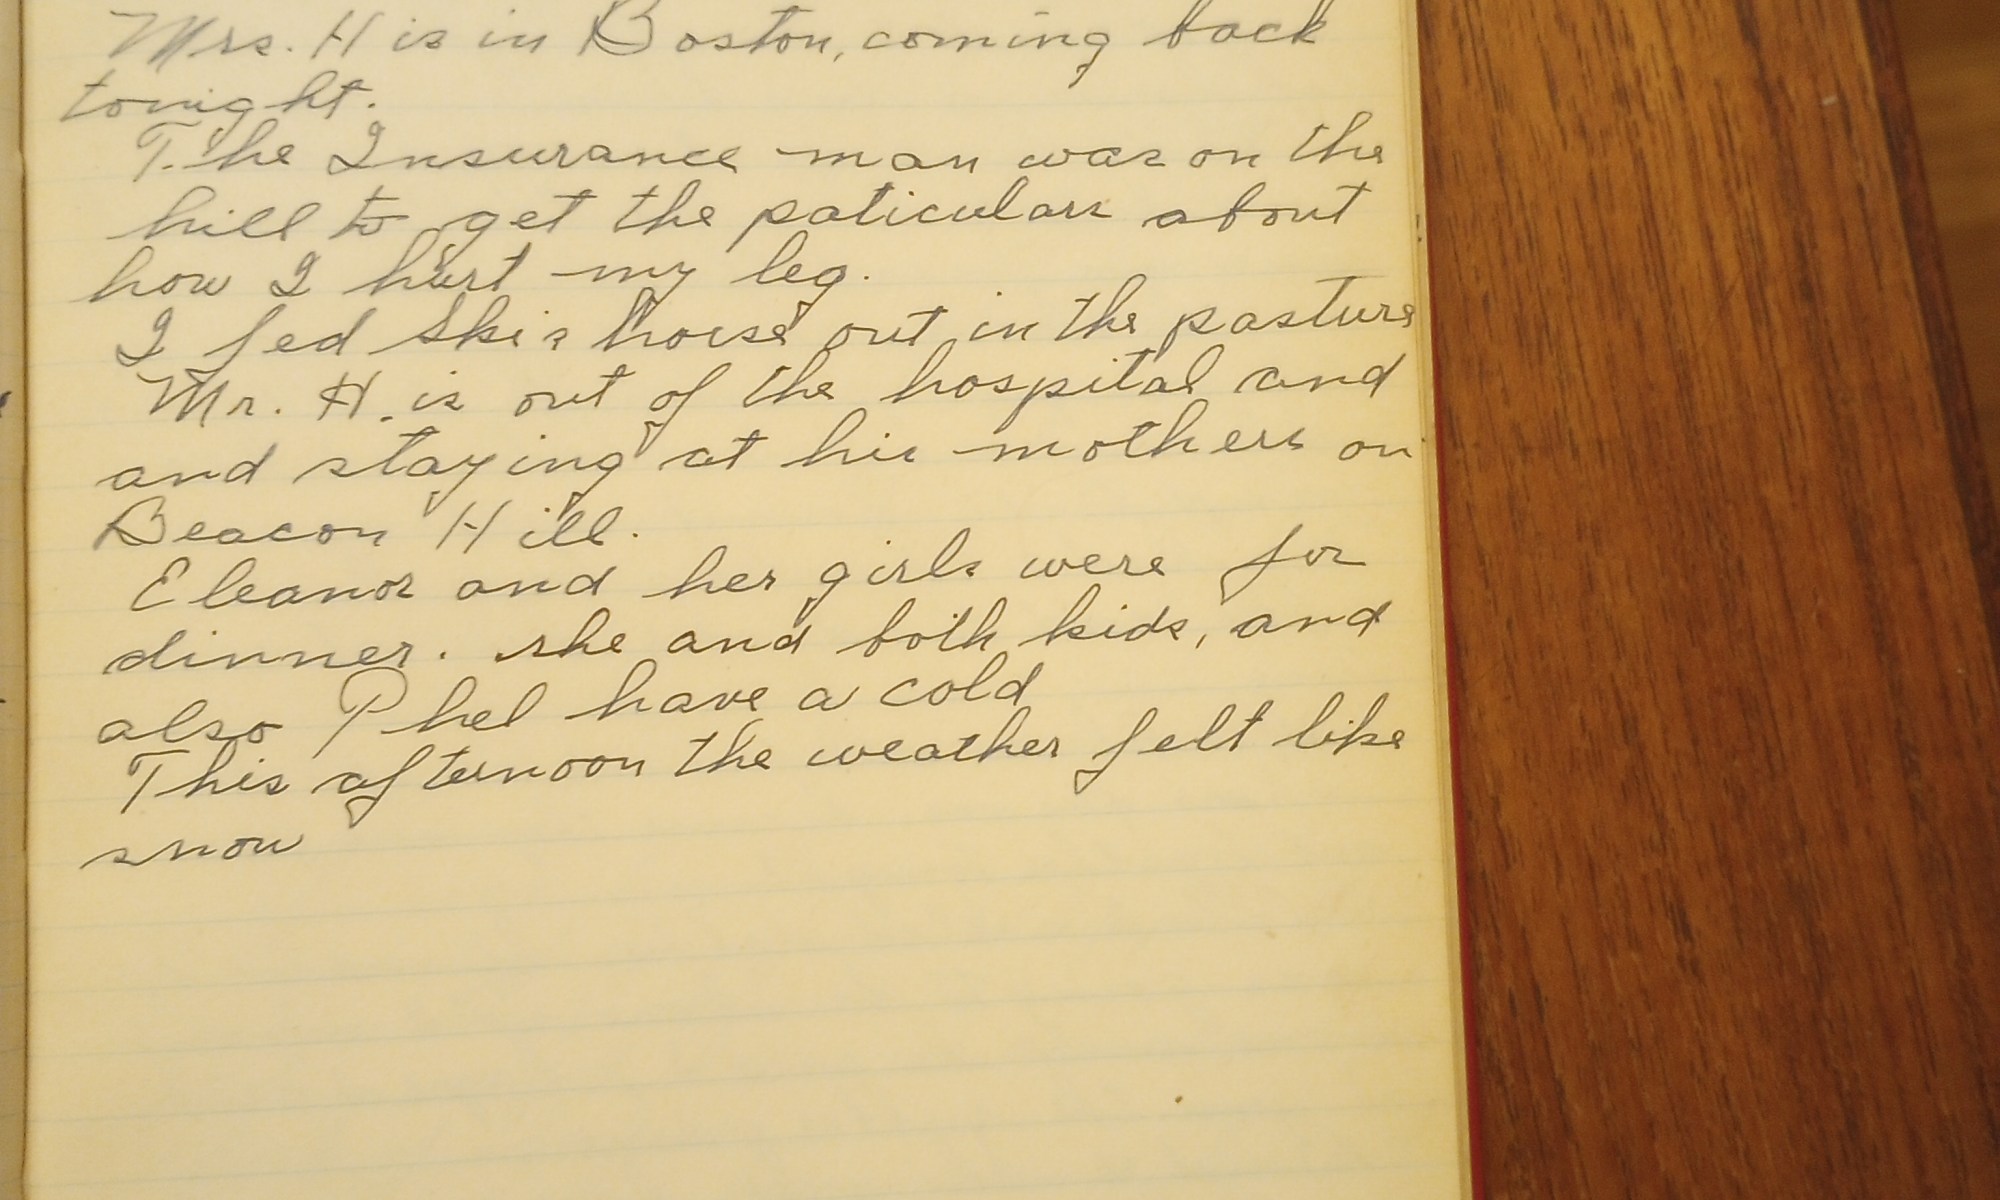 Mrs. H is in Boston, coming back
tonight.
The Insurance man was on the
hill to get the paticulars about
how I hurt my leg.
I fed Skis horse out in the pasture
Mr. H. is out of the hospital and
and staying at his mothers on
Beacon Hill.
Eleanor and her girls were for
dinner. she and both kids, and
also Phel have a cold
This afternoon the weather felt like
snow